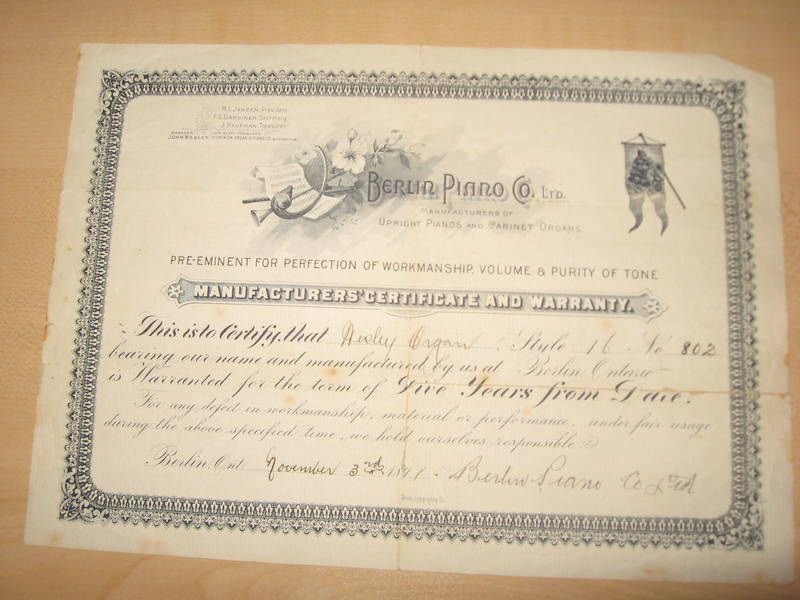 R. L. JANZEN, President
F. G. GARDINER, Secretary
J. KAUFMAN, Treasurer
MANAGER
JOHN WESLEY
BERLIN PIANO CO. LTD.
MANUFACTURERS OF
UPRIGHT PIANOS AND CABINET ORGANS
PRE-EMINENT FOR PERFECTION OF WORKMANSHIP, VOLUME & PURITY OF TONE
MANUFACTURERS' CERTIFICATE AND WARRANTY.
This is to Certify, that Wesley Organ Style 16 No 802
bearing our name and manufactured by us at Berlin Ontario
is Warranted for the term of Five Years from Date.
For any defect in workmanship, material or performance, under fair usage
during the above specified time, we hold ourselves responsible
Berlin, Ont November 3rd 1891. Berlin Piano Co Ltd